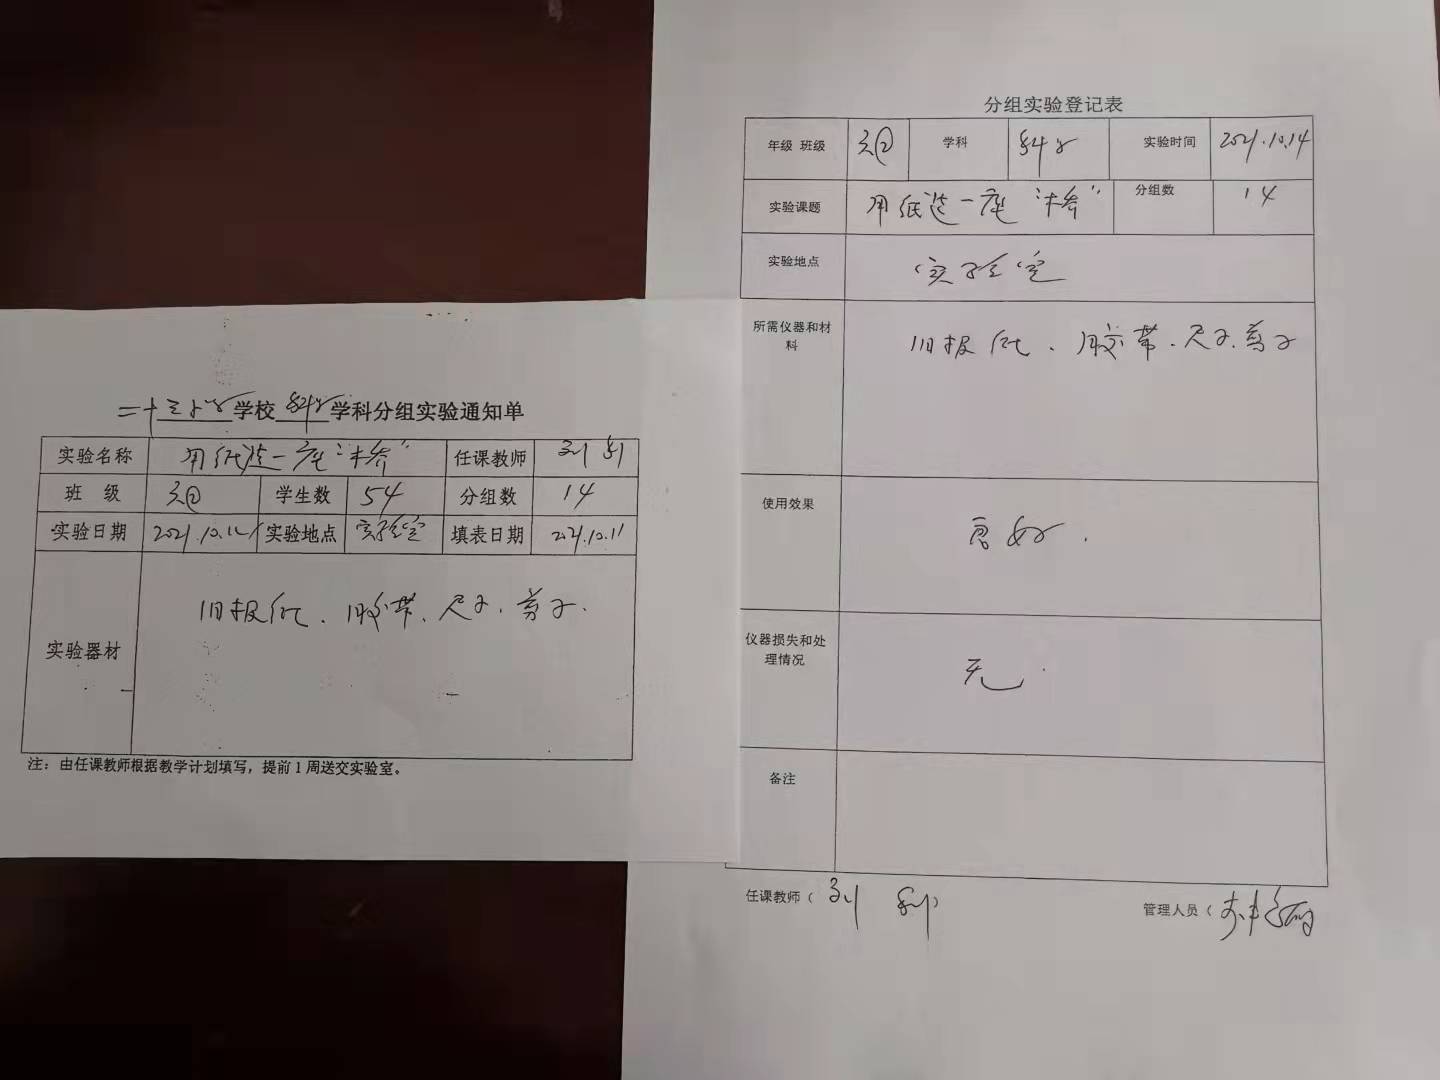 二十三小学学校科学学科分组实验通知单
实验名称 用纸造一座“桥” 任课教师 刘
班 级 学生数 54 分组数 14
实验日期 实验地点 实验室 填表日期 2021.10.11
实验器材 旧报纸、胶带、尺子、剪子.
注：由任课教师根据教学计划填写，提前1周送交实验室。
分组实验登记表
年级 班级 学科 科学 实验时间 2021.10.14
实验课题 用纸造一座“桥” 分组数 14
实验地点 实验室
所需仪器和材料 旧报纸、胶带、尺子、剪子
使用效果 良好.
仪器损失和处理情况 无.
备注
任课教师（ 刘 ） 管理人员（